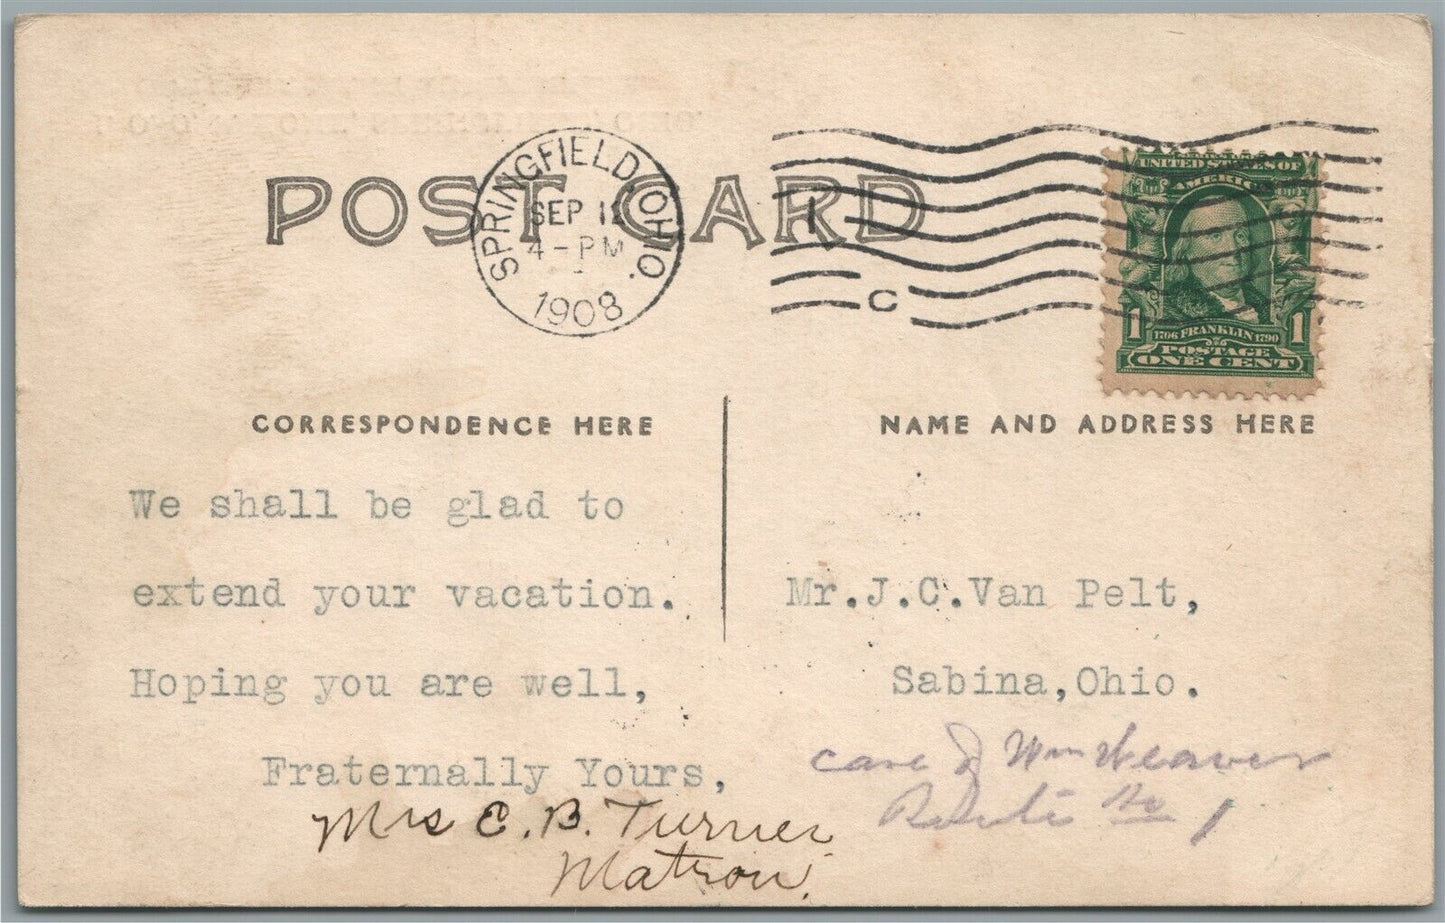 POST CARD
SPRINGFIELD, OHIO.
SEP 12
4 - PM
1908
1
C
UNITED STATES OF
AMERICA
1706 FRANKLIN 1790
POSTAGE
1 ONE CENT 1
CORRESPONDENCE HERE
NAME AND ADDRESS HERE
We shall be glad to
extend your vacation.
Hoping you are well,
Fraternally Yours,
Mrs E. B. Turner
Matron.
Mr.J.C.Van Pelt,
Sabina,Ohio.
care of Wm Weaver
Route No 1